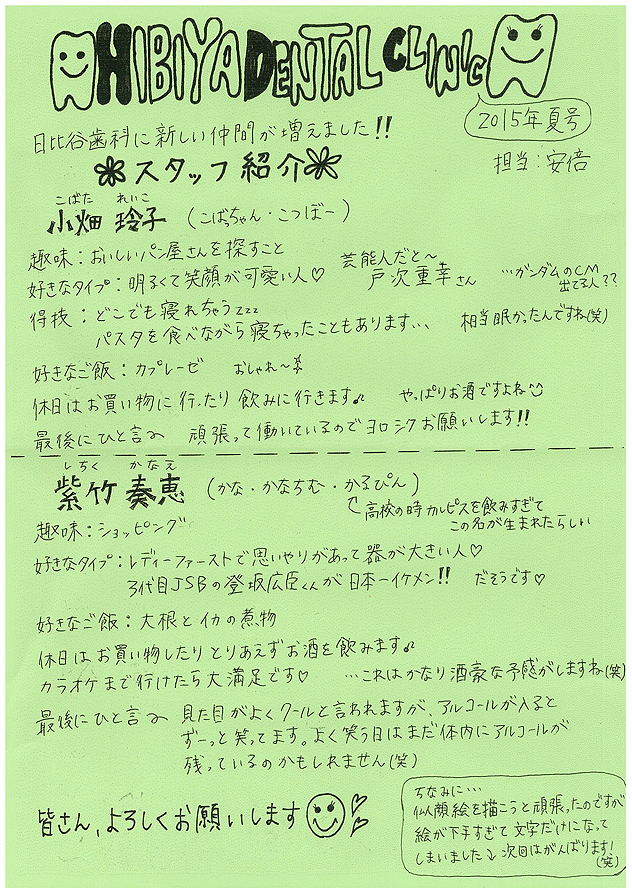 HIBIYA DENTAL CLINIC
2015年夏号
担当：安倍
日比谷歯科に新しい仲間が増えました!!
スタッフ紹介
こばた れいこ
小畑 玲子 (こばっちゃん・こつばー)
趣味：おいしいパン屋さんを探すこと
好きなタイプ：明るくて笑顔が可愛い人♡
芸能人だと〜
戸次重幸さん
…ガンダムのCM
出てる人??
得技：どこでも寝れちゃうzzz
パスタを食べながら寝ちゃったこともあります… 相当眠かったんですね(笑)
好きなご飯：カプレーゼ おしゃれ〜
休日はお買い物に行ったり飲みに行きます♪ やっぱりお酒ですよね
最後にひと言 頑張って働いているのでヨロシクお願いします!!
しちく かなえ
紫竹 奏恵 (かな・かなちむ・かるぴん)
高校の時カルピスを飲みすぎて
この名が生まれたらしい
趣味：ショッピング
好きなタイプ：レディーファーストで思いやりがあって器が大きい人♡
3代目JSBの登坂広臣くんが日本一イケメン!! だそうです♡
好きなご飯：大根とイカの煮物
休日はお買い物したりとりあえずお酒を飲みます♪
カラオケまで行けたら大満足です♡ …これはかなり酒豪な予感がしますね(笑)
最後にひと言 見た目がよくクールと言われますが、アルコールが入ると
ずーっと笑ってます。よく笑う日はまだ体内にアルコールが
残っているのかもしれません(笑)
皆さん、よろしくお願いします
ちなみに…
似顔絵を描こうと頑張ったのですが
絵が下手すぎて文字だけになって
しまいました 次回はがんばります!
(笑)